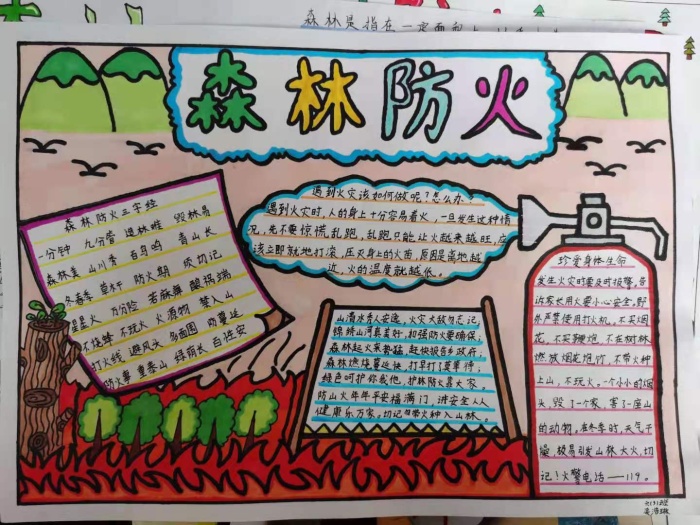 森林是指在一定面积上
森林防火
森林防火三字经
一分钟 九分管 退林难 毁林易
森林美 山川秀 百鸟鸣 青山长
冬春季 草木干 防火期 须切记
星星火 万分险 若麻痹 酿祸端
不烧蜂 不玩火 火源物 禁入山
打火线 避风头 多面围 防蔓延
防火事 重泰山 绿荫长 百姓安
遇到火灾该如何做呢?怎么办?
遇到火灾时,人的身上十分容易着火,一旦发生这种情
况,先不要惊慌乱跑,乱跑只能让火越来越旺,应
该立即就地打滚,压灭身上的火苗,原因是离地越
近,火的温度就越低。
山清水秀人安逸,火灾大敌勿忘记,
锦绣山河是美好,加强防火要确保;
森林起火来势猛,赶快报告乡政府,
森林燃烧蔓延快,打早打了莫等待;
绿色呵护你我他,护林防火喜大家,
防山火年年平安福满门,讲安全人人
健康乐万家。切记勿带火种入山林。
珍爱身体生命
发生火灾时要及时报警,告
诉家长用火要小心安全,野
外严禁使用打火机。不买烟
花,不买鞭炮,不在树林
燃放烟花炮竹,不带火种
上山,不玩火。一个小小的烟
头,毁了一个家,害了一座山
的动物,在冬季时,天气干
燥,极易引发山林大火,切
记!火警电话——119。